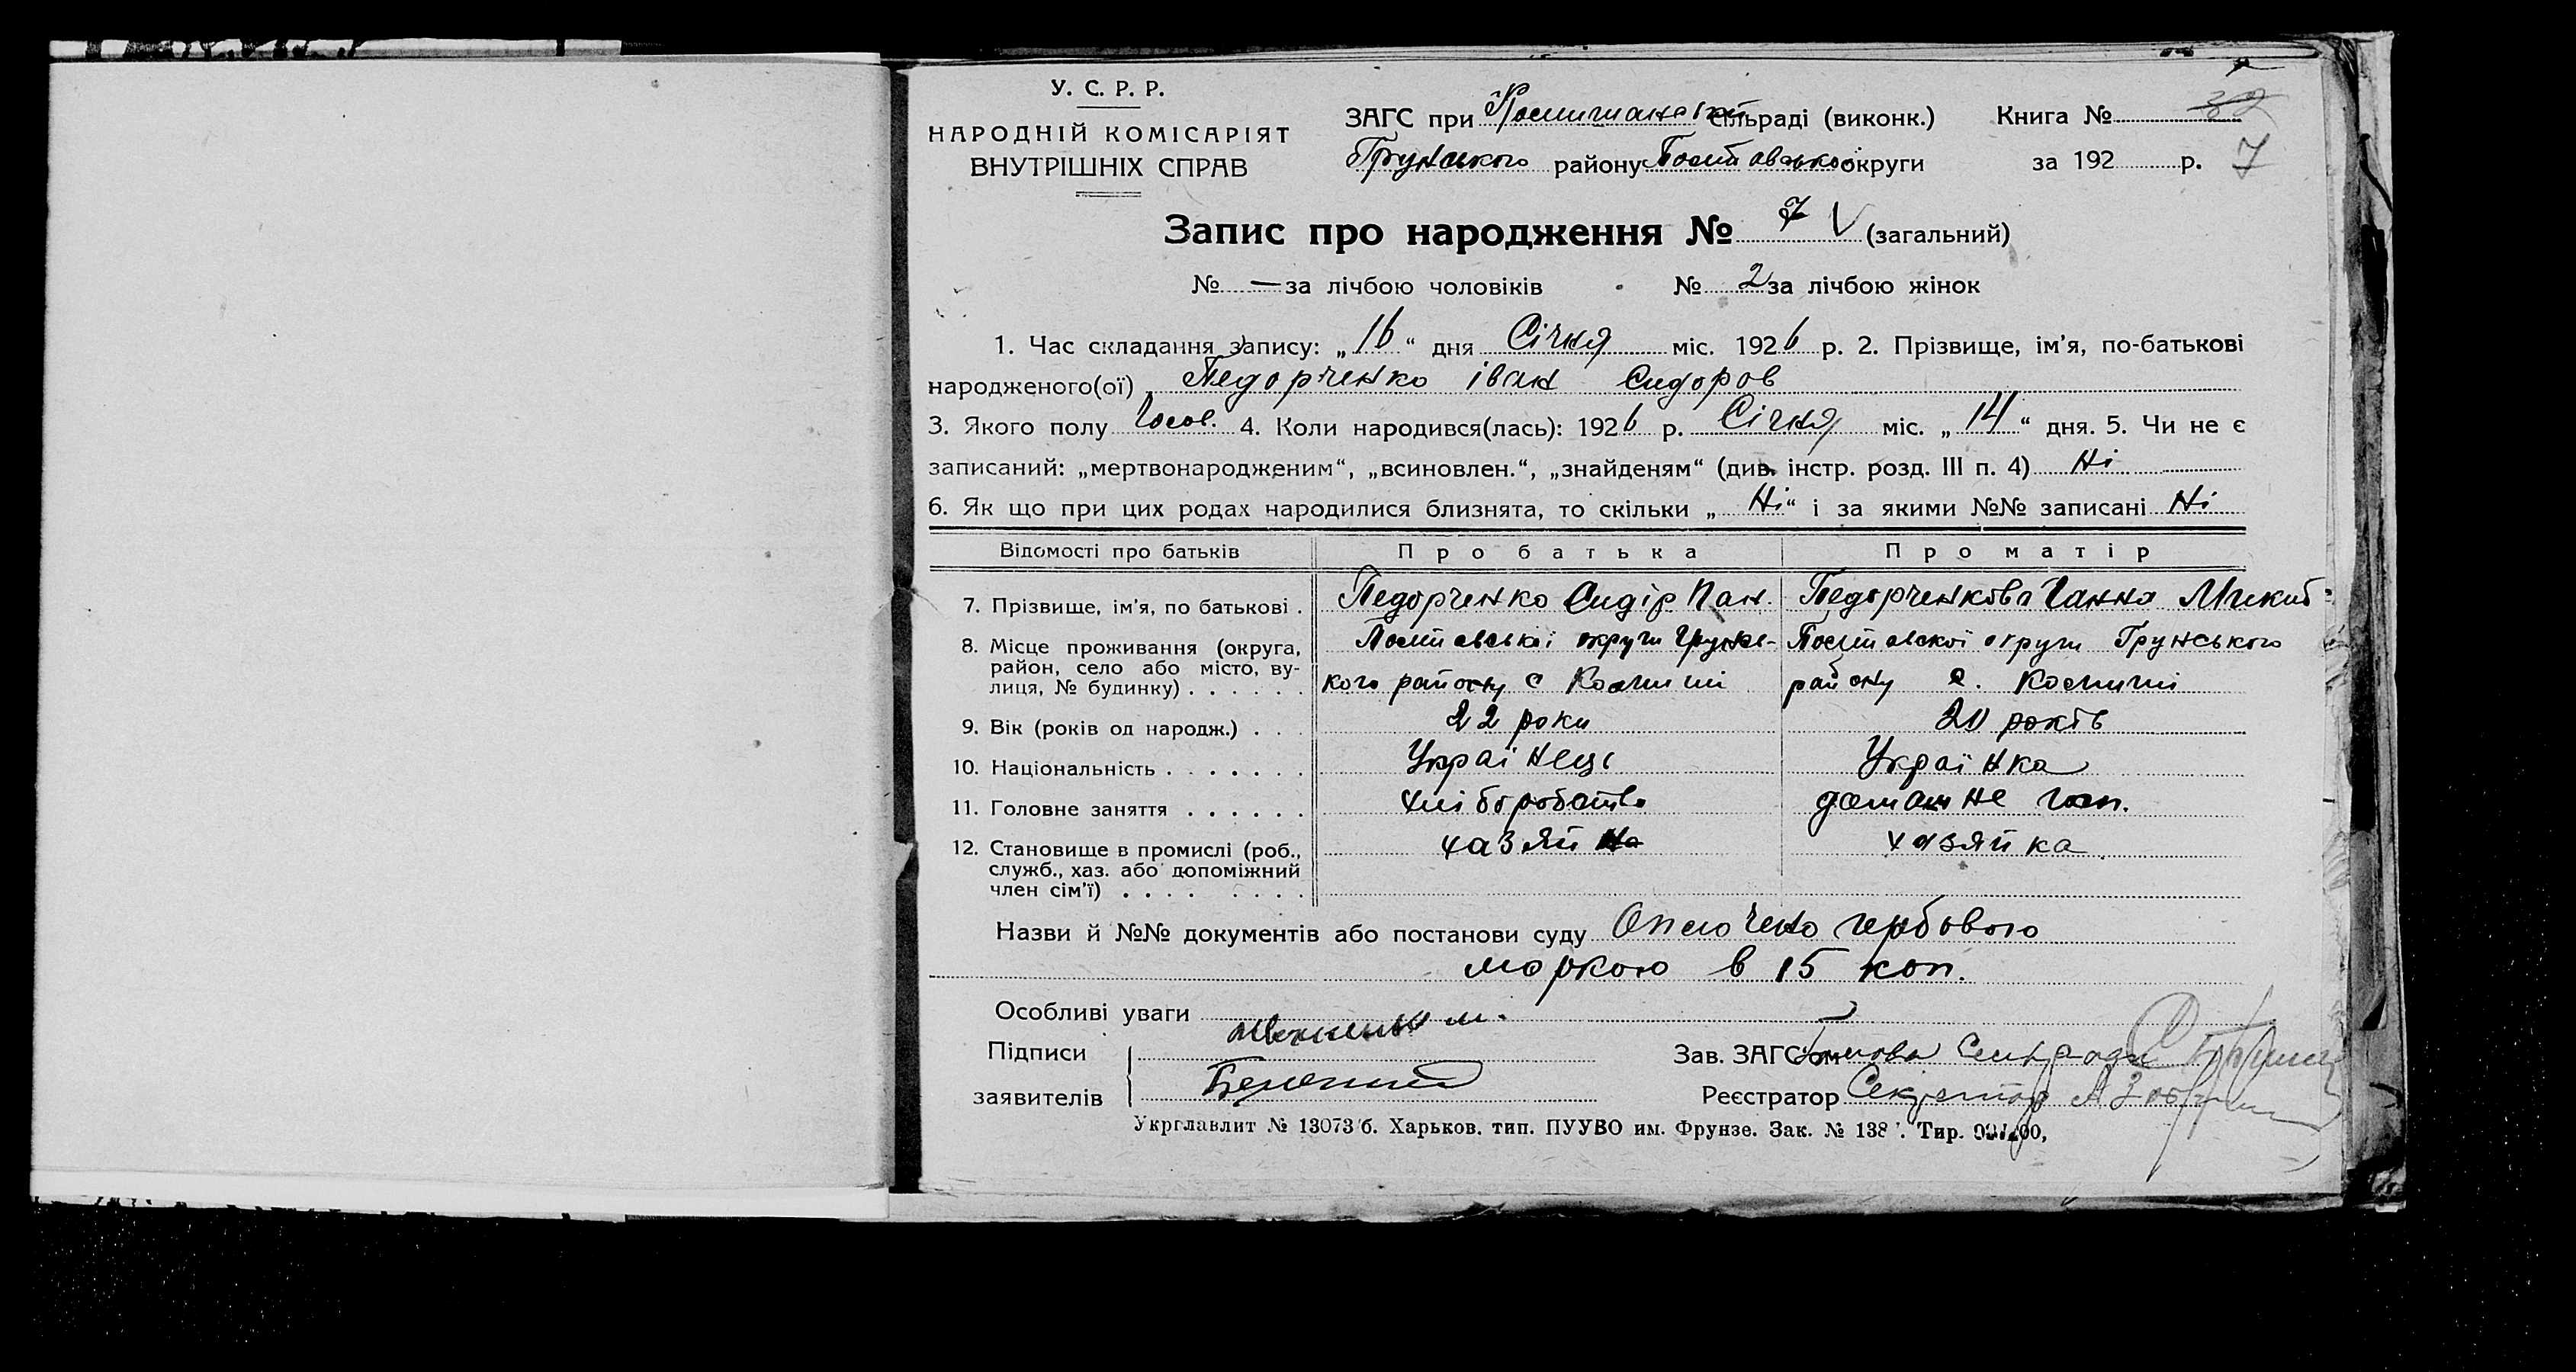 У. С. Р. Р.
НАРОДНІЙ КОМІСАРІЯТ
ВНУТРІШНІХ СПРАВ
ЗАГС при сільраді (виконк.) Книга № 32
Грунського району Полтавської округи за 192 р. 7
Запис про народження № 7 V (загальний)
№ — за лічбою чоловіків № 2 за лічбою жінок
1. Час складання запису: „16“ дня Січня міс. 1926 р. 2. Прізвище, ім'я, по-батькові
народженого(ої) Педорченко іван Сидоров
3. Якого полу Чолов. 4. Коли народився(лась): 1926 р. Січня міс. „14“ дня. 5. Чи не є
записаний: „мертвонародженим“, „всиновлен.“, „знайденям“ (див. інстр. розд. III п. 4) Ні
6. Як що при цих родах народилися близнята, то скільки „Ні“ і за якими №№ записані Ні
Відомості про батьків Про батька Про матір
7. Прізвище, ім'я, по батькові . Педорченко Сидір Пан. Педорченкова Ганна Микит
8. Місце проживання (округа, район, село або місто, вулиця, № будинку) . . . . . .
Полтавської округи Грунсь-
кого району с
Полтавскої округи Грунського
району с.
9. Вік (років од народж.) . . . 22 роки 20 років
10. Національність . . . . . . . Українець Українка
11. Головне заняття . . . . . . хліборобство домашнє госп.
12. Становище в промислі (роб., служб., хаз. або допоміжний член сім'ї) . . . . . . . . хазяйна хазяйка
Назви й №№ документів або постанови суду Оплочено гербовою
маркою в 15 коп.
Особливі уваги
Підписи
заявителів
Зав. ЗАГС'ом Голова Сільради
Реєстратор Секретар
Укрглавлит № 13073/б. Харьков. тип. ПУУВО им. Фрунзе. Зак. № 138 . Тир.